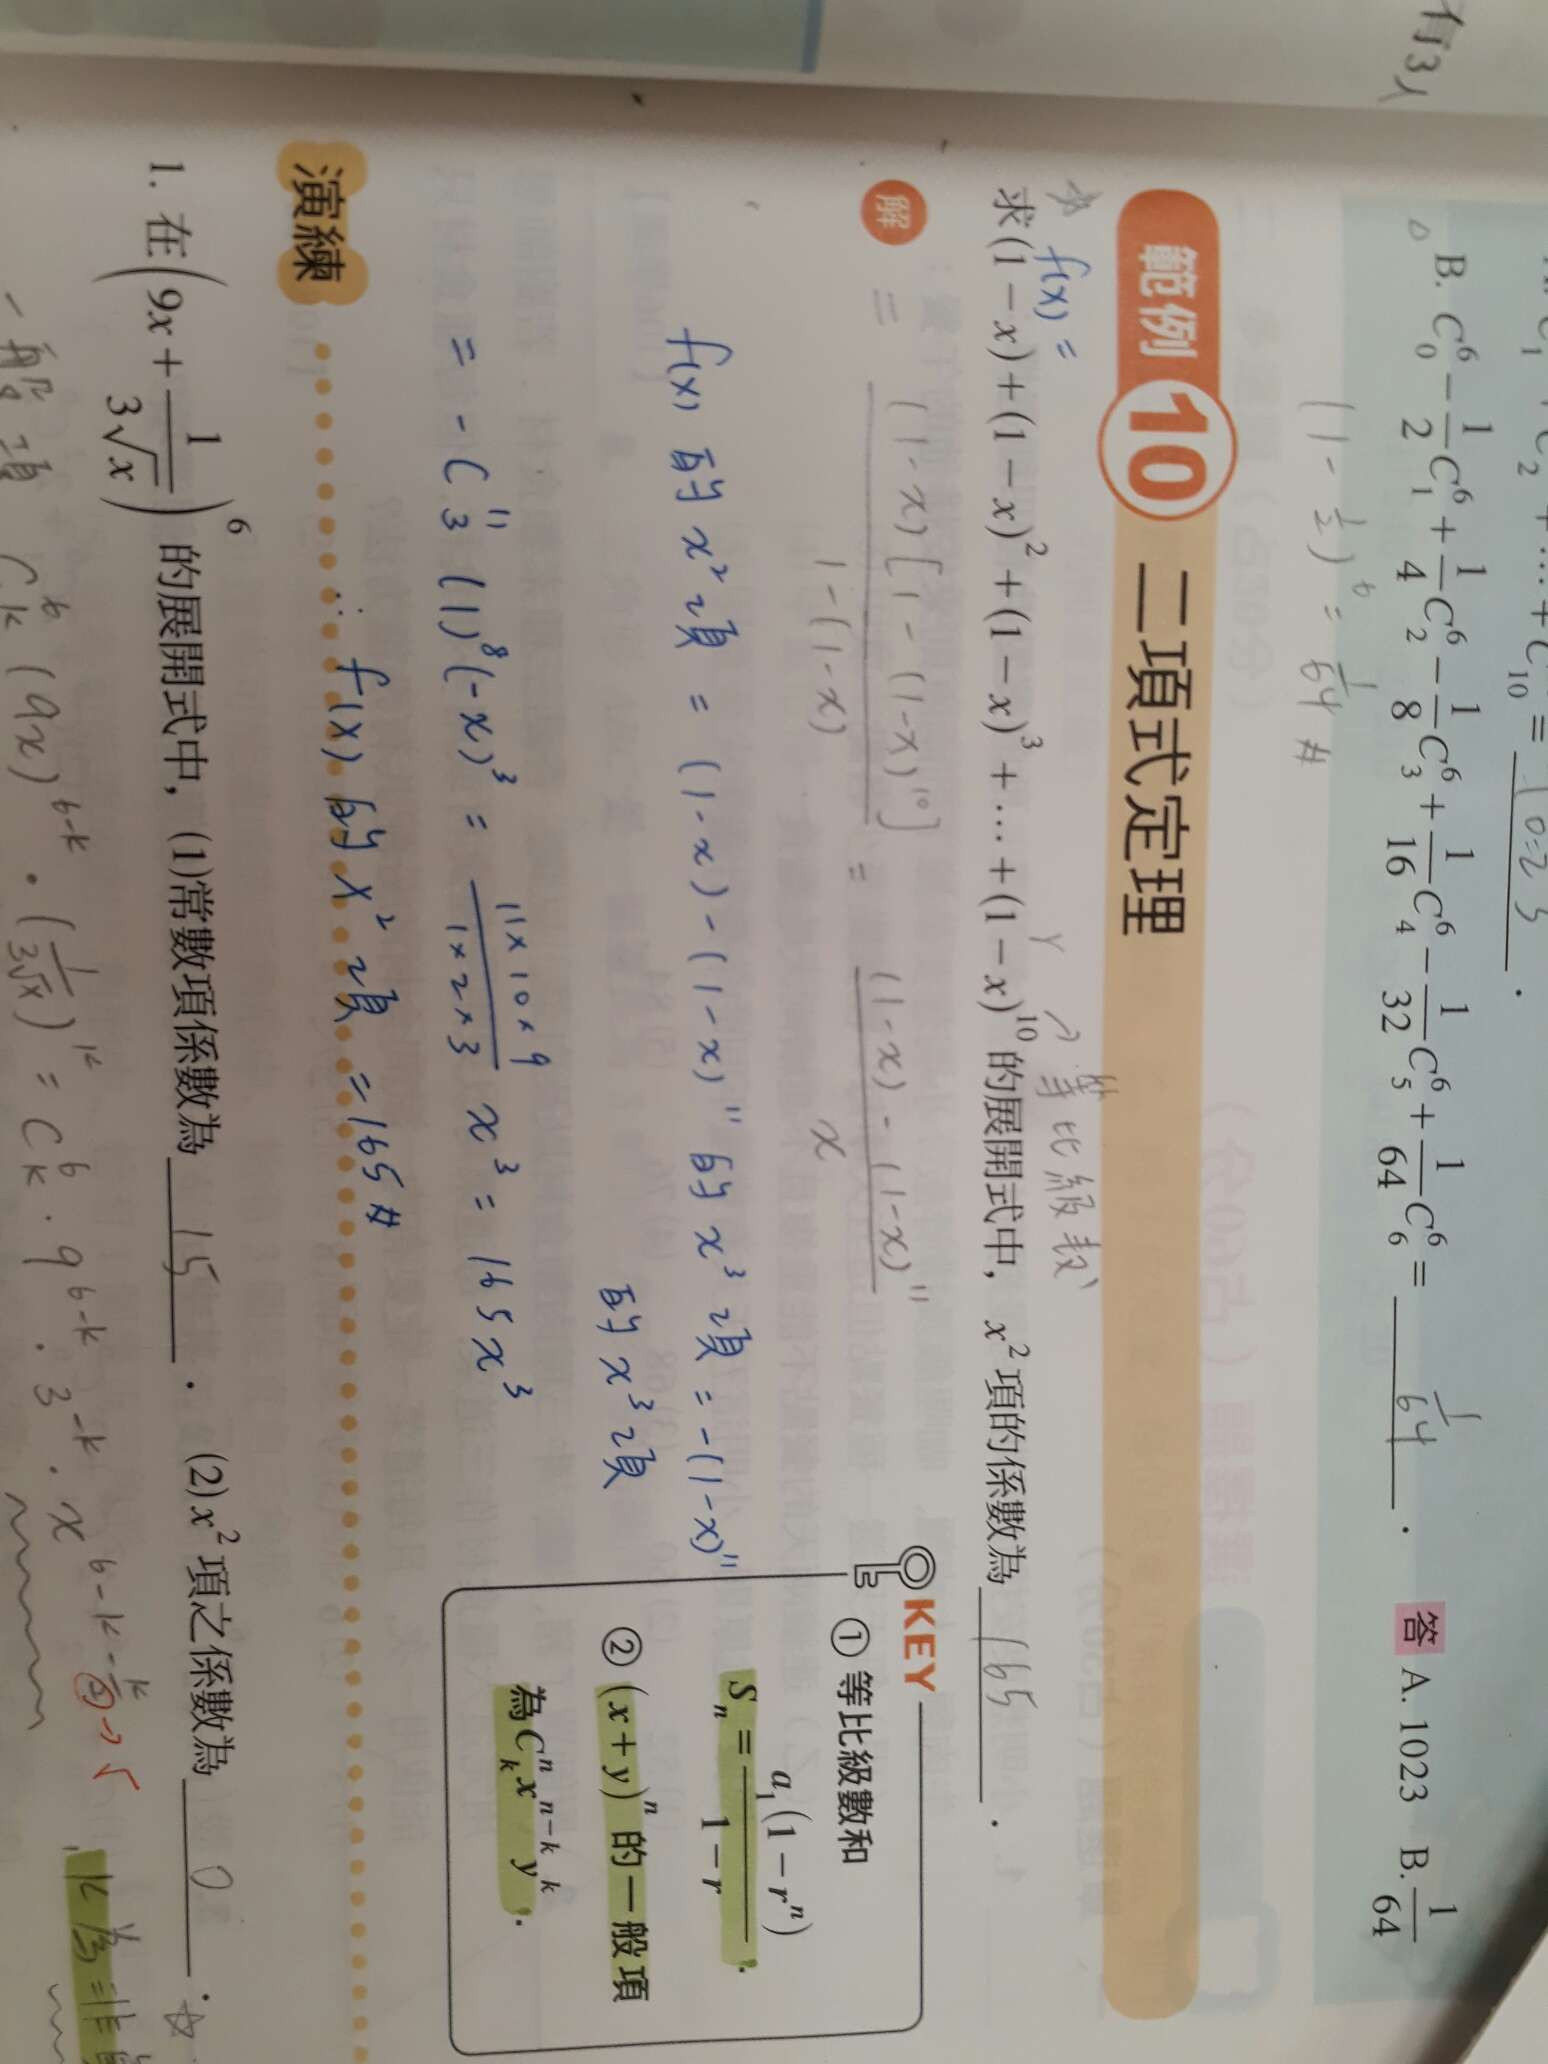 有3人
10=23.
△ B. C⁶₀ − 1/2 C⁶₁ + 1/4 C⁶₂ − 1/8 C⁶₃ + 1/16 C⁶₄ − 1/32 C⁶₅ + 1/64 C⁶₆ = 1/64 . 答 A. 1023 B. 1/64
(1 - 1/2)⁶ = 1/64 #
範例 10 二項式定理
☆ f(x) = r → 等比級數
求(1−x)+(1−x)²+(1−x)³+…+(1−x)¹⁰的展開式中,x²項的係數為 165 .
解 = (1-x)[1-(1-x)¹⁰] / 1-(1-x) = (1-x)-(1-x)¹¹ / x
f(x) 的 x² 項 = (1-x)-(1-x)¹¹ 的 x³ 項 = -(1-x)¹¹
的 x³ 項
= -C¹¹₃ (1)⁸(-x)³ = 11×10×9 / 1×2×3 x³ = 165x³
∴ f(x) 的 x² 項 = 165 #
KEY
① 等比級數和
Sₙ = a₁(1−rⁿ) / 1−r .
② (x+y)ⁿ 的一般項
為 Cⁿₖ xⁿ⁻ᵏ yᵏ.
演練
1. 在(9x + 1/(3√x))⁶ 的展開式中,(1)常數項係數為 15 . (2) x² 項之係數為 0 . ☆
一般項 C⁶ₖ (9x)⁶⁻ᵏ · (1/(3√x))ᵏ = C⁶ₖ · 9⁶⁻ᵏ · 3⁻ᵏ · x^(6-k-k/2) → √
k 為非